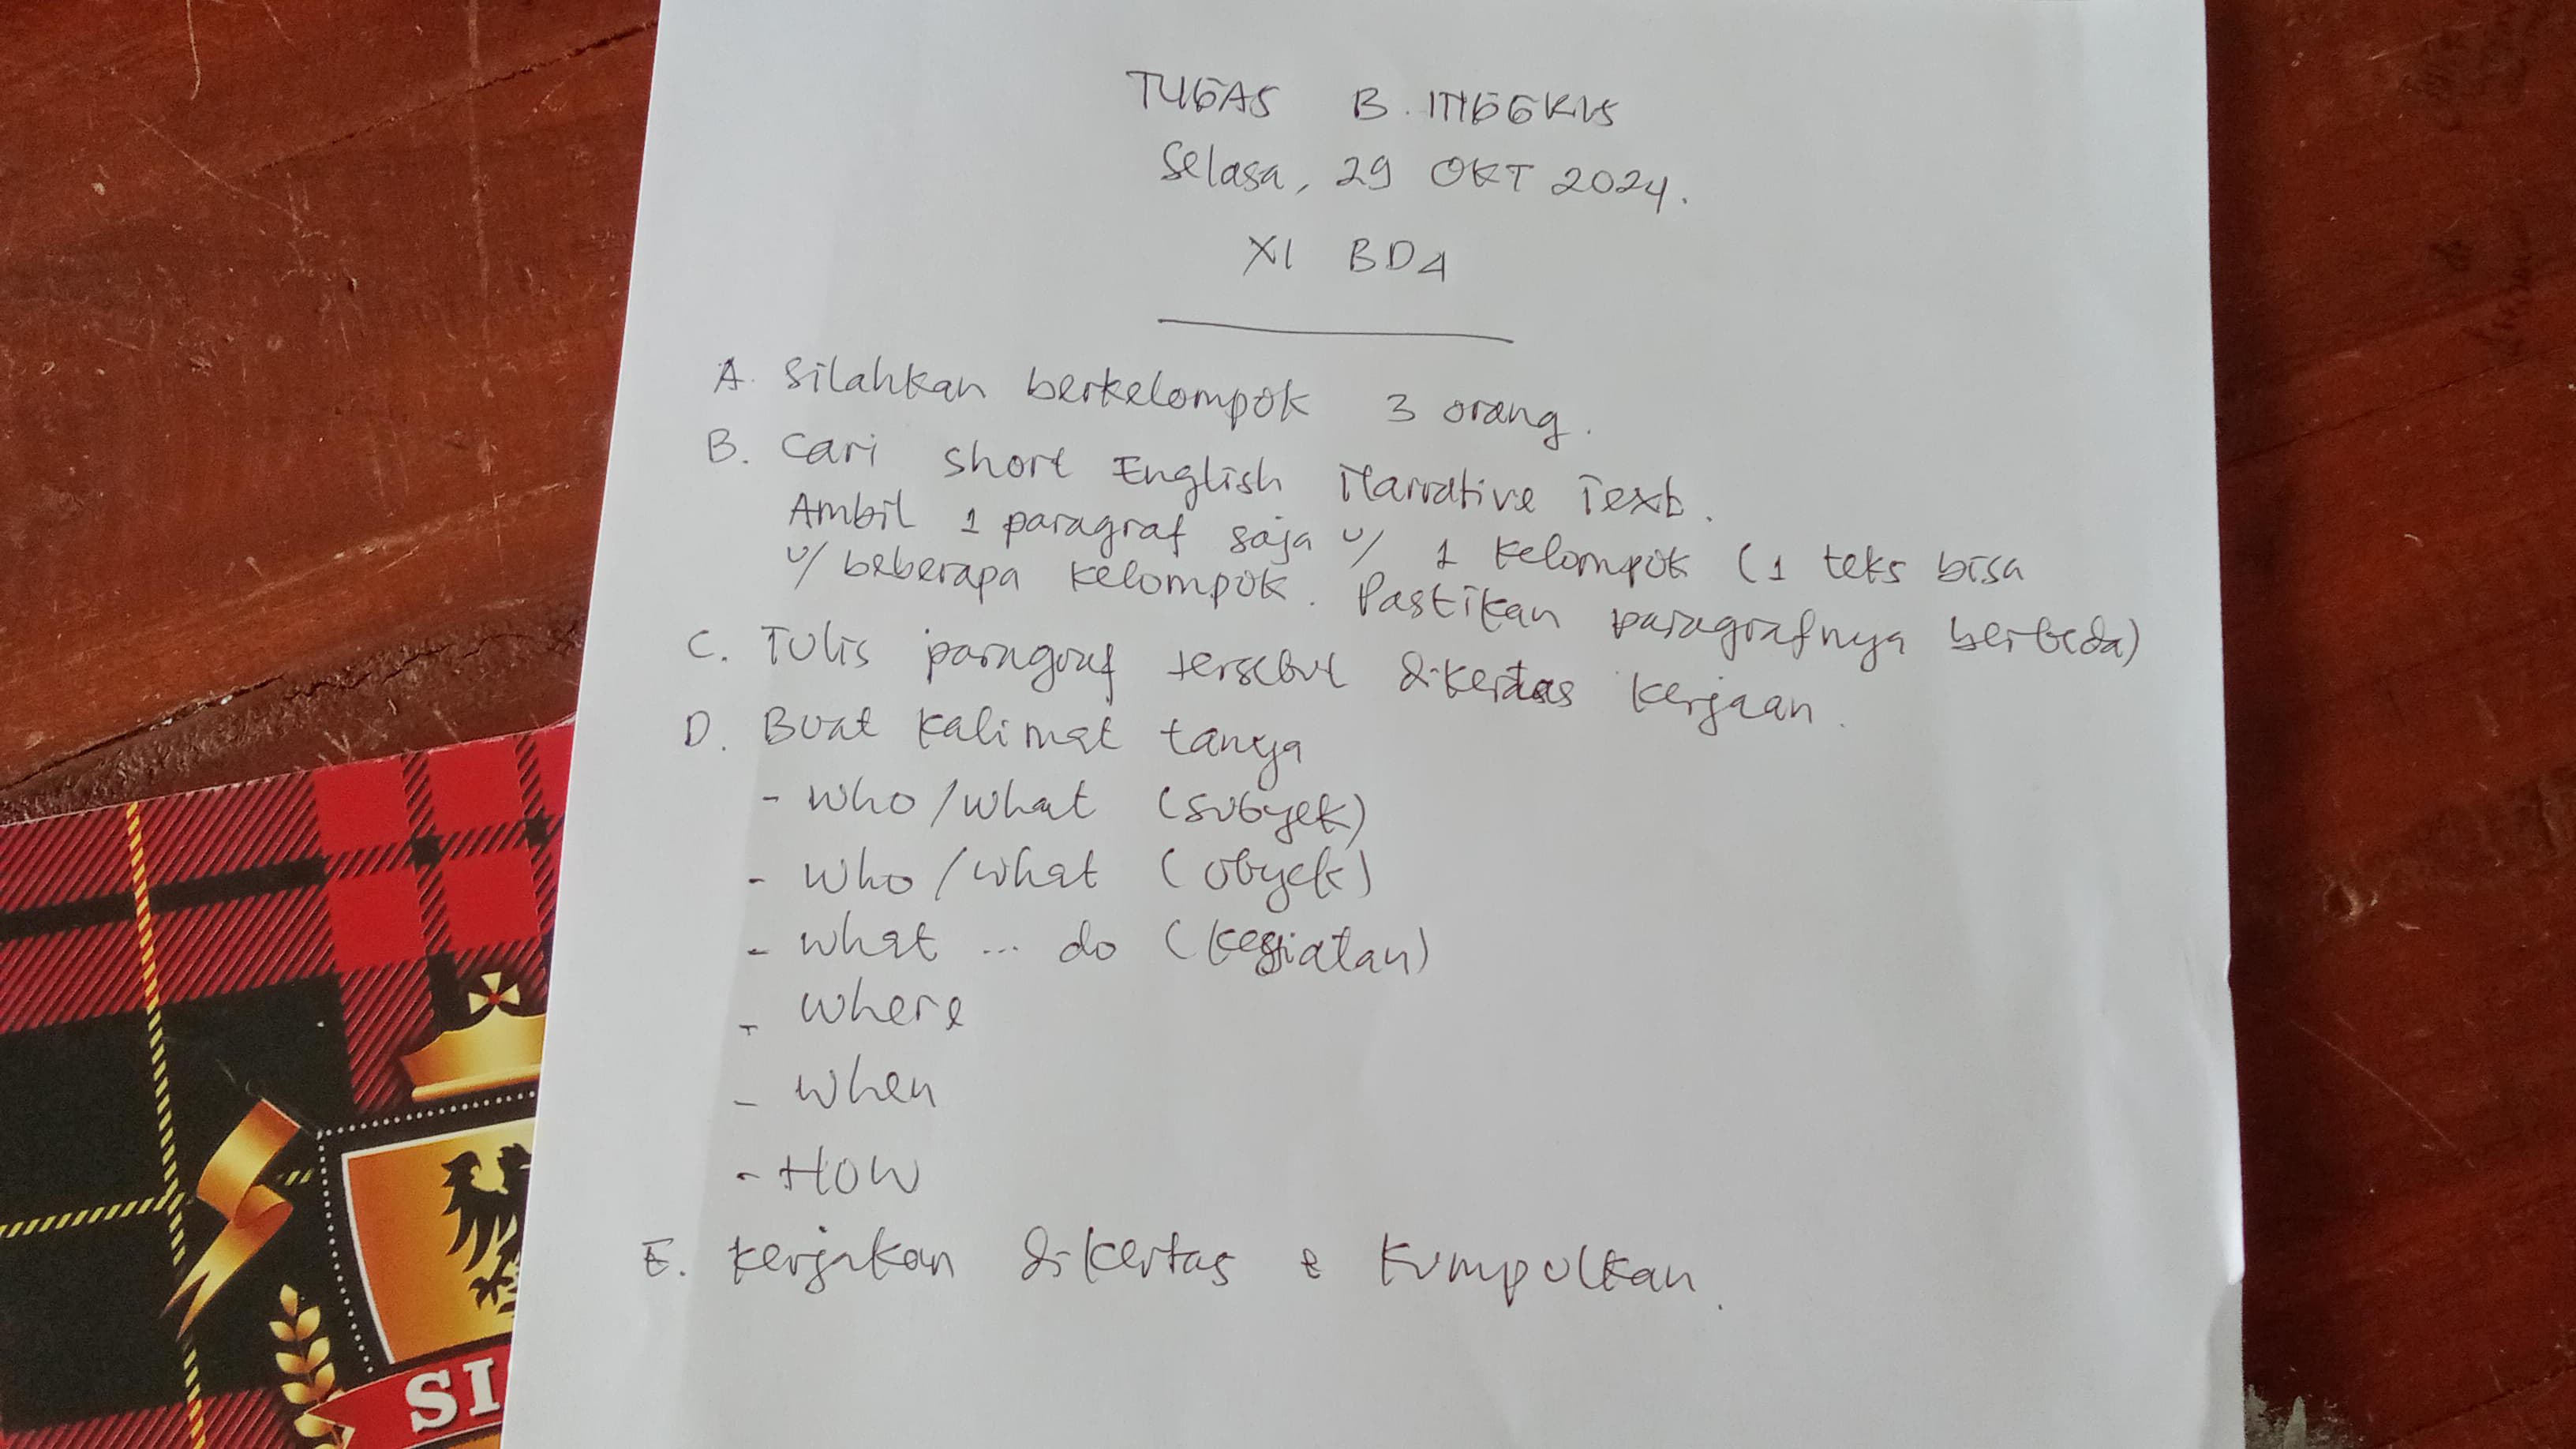 TUGAS B. INGGRIS
Selasa, 29 OKT 2024.
XI BD4
A. Silahkan berkelompok 3 orang.
B. Cari short English Narrative Text.
Ambil 1 paragraf saja u/ 1 kelompok (1 teks bisa
u/ beberapa kelompok. Pastikan paragrafnya berbeda)
C. Tulis paragraf tersebut dikertas kerjaan.
D. Buat kalimat tanya
- who/what (subyek)
- who/what (obyek)
- what ... do (kegiatan)
- where
- when
- HOW
E. kerjakan dikertas & kumpulkan.
SI